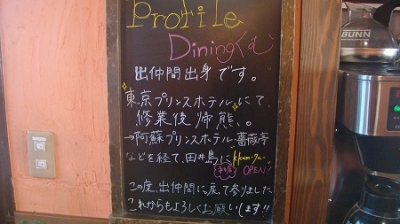 Profile
Diningくむ
出仲間出身です。
東京プリンスホテルにて
修業後帰熊。
→阿蘇プリンスホテル、薔薇亭
などを経て、田井島に
OPEN!
この度、出仲間に戻て参りました
これからもよろしくお願いします!!
BUNN